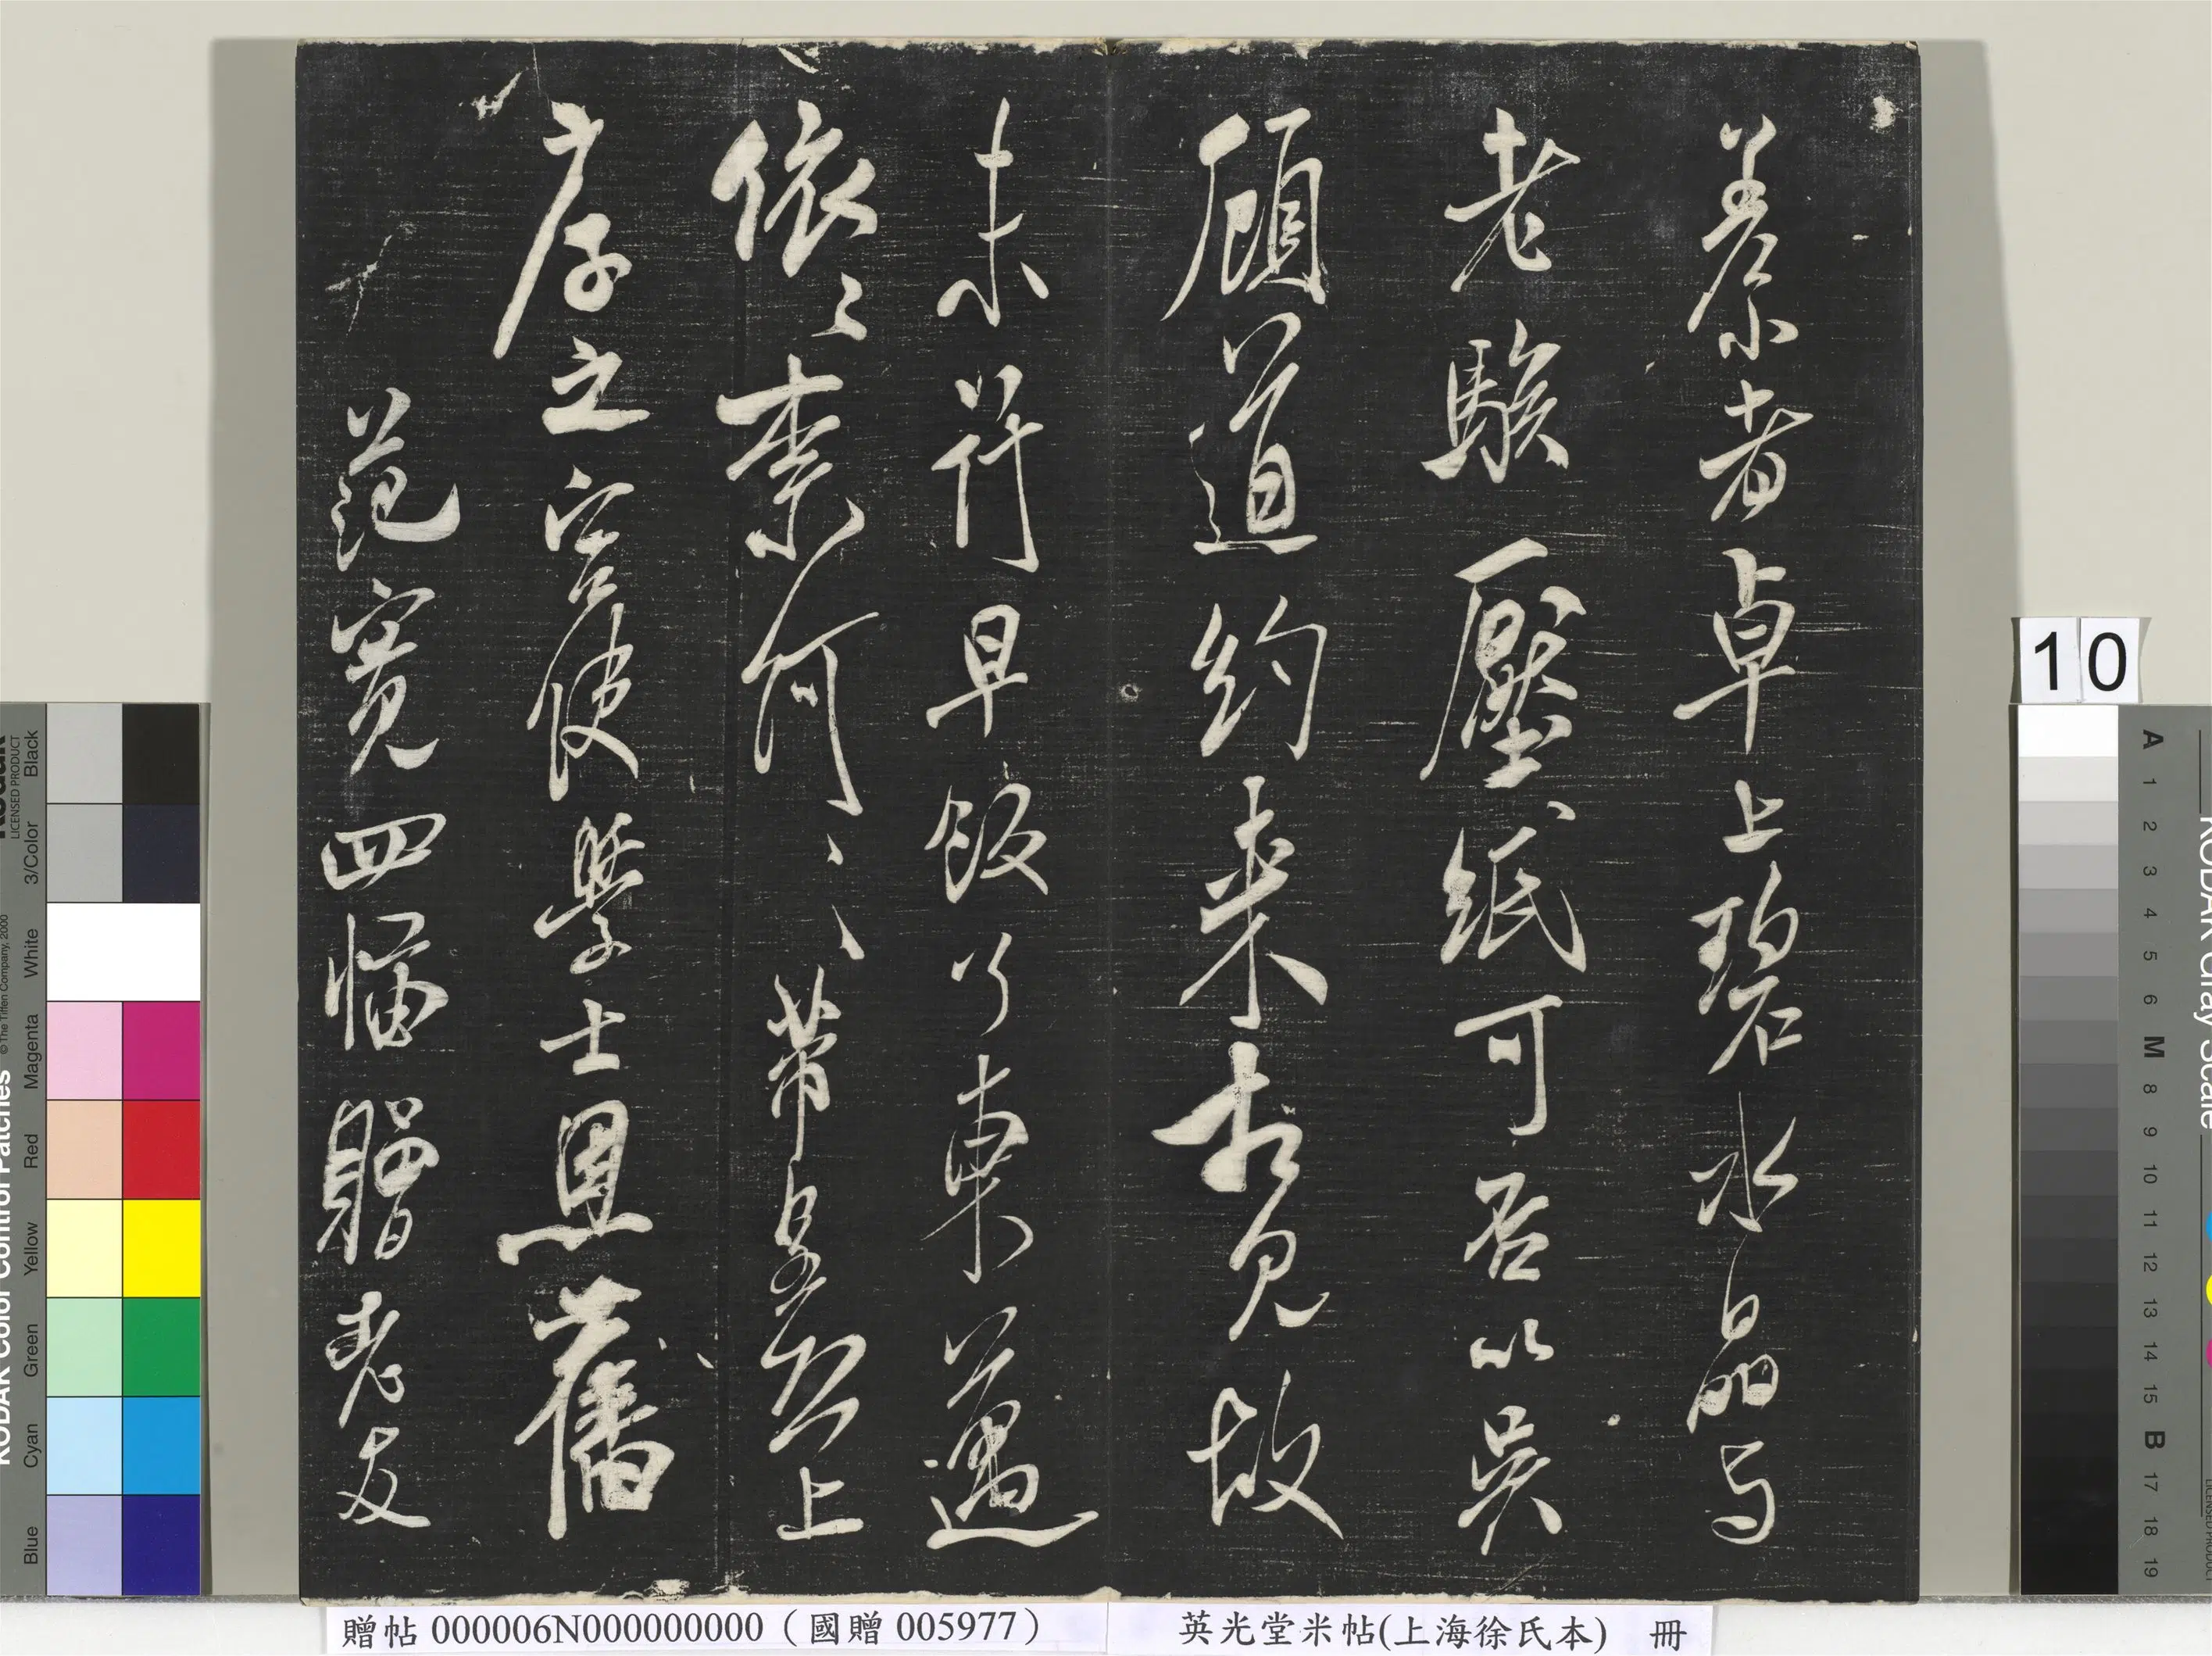 者卓上碧水晶与
老駭壓紙可否以吴
顧道約来相見故
未早飯了東邁
依〻奈何〻〻芾皇恐上
之宫使學士恩舊
范寛四幅贈老友
10
贈帖 000006N000000000（國贈 005977）
英光堂米帖(上海徐氏本) 冊
KODAK Color Control Patches
LICENSED PRODUCT
© The Tiffen Company, 2000
Blue Cyan Green Yellow Red Magenta White 3/Color Black
KODAK Gray Scale
A 1 2 3 4 5 6 M 8 9 10 11 12 13 14 15 B 17 18 19